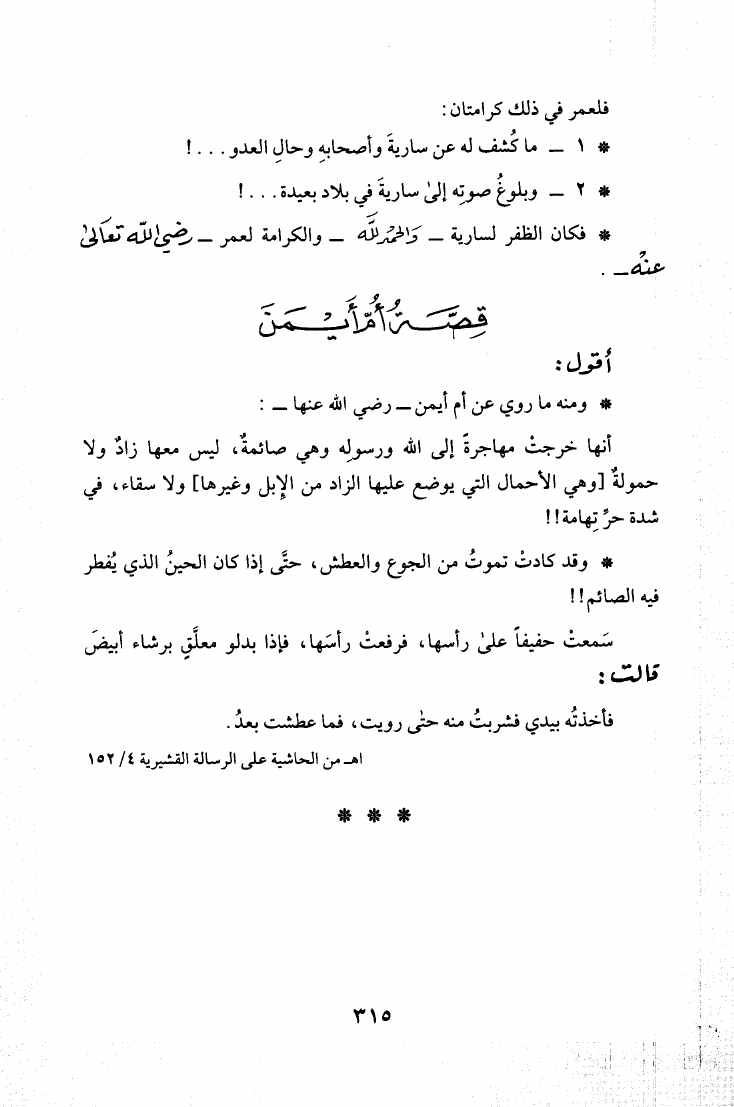 فلعمر في ذلك كرامتان:
* ١ – ما كُشف له عن ساريةَ وأصحابهِ وحالِ العدو . . . !
* ٢ – وبلوغُ صوتِه إلىٰ ساريةَ في بلاد بعيدة . . . !
* فكان الظفر لسارية – وَالحَمْدُ لِلَّهِ – والكرامة لعمر – رَضِيَ اللهُ تَعَالىٰ
عَنْهُ – .
قِصَّةُ أُمِّ أَيْمَنَ
أقول:
* ومنه ما روي عن أم أيمن – رضي الله عنها – :
أنها خرجتْ مهاجرةً إلى الله ورسولِه وهي صائمةٌ، ليس معها زادٌ ولا
حمولةٌ [وهي الأحمال التي يوضع عليها الزاد من الإبل وغيرها] ولا سقاء، في
شدة حرِّ تِهامة!!
* وقد كادتْ تموتُ من الجوع والعطش، حتَّى إذا كان الحينُ الذي يُفطر
فيه الصائم!!
سَمعتْ حفيفاً علىٰ رأسها، فرفعتْ رأسَها، فإذا بدلو معلَّقٍ برشاء أبيضَ
قالت:
فأخذتُه بيدي فشربتُ منه حتٰى رويت، فما عطشت بعدُ.
اهـ من الحاشية على الرسالة القشيرية ٤/ ١٥٢
* * *
٣١٥